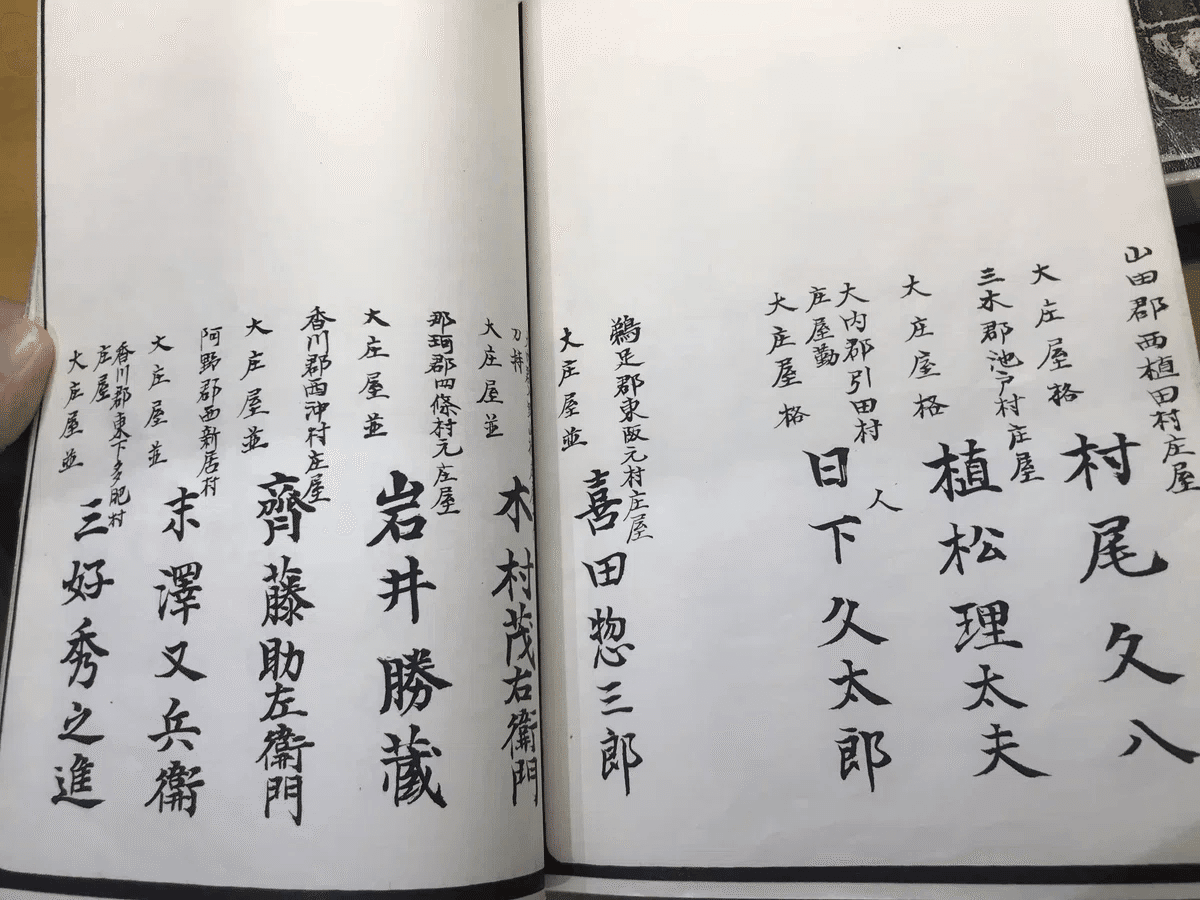 山田郡西植田村庄屋
大庄屋格
村尾久八
三木郡池戸村庄屋
大庄屋格
植松理太夫
人
大内郡引田村
庄屋勤
大庄屋格
日下久太郎
鵜足郡東阪元村庄屋
大庄屋並
喜田惣三郎
大庄屋並
木村茂右衛門
那珂郡四條村元庄屋
大庄屋並
岩井勝蔵
香川郡西沖村庄屋
大庄屋並
齊藤助左衛門
阿野郡西新居村
大庄屋並
末澤又兵衛
香川郡東下多肥村
庄屋
大庄屋並
三好秀之進